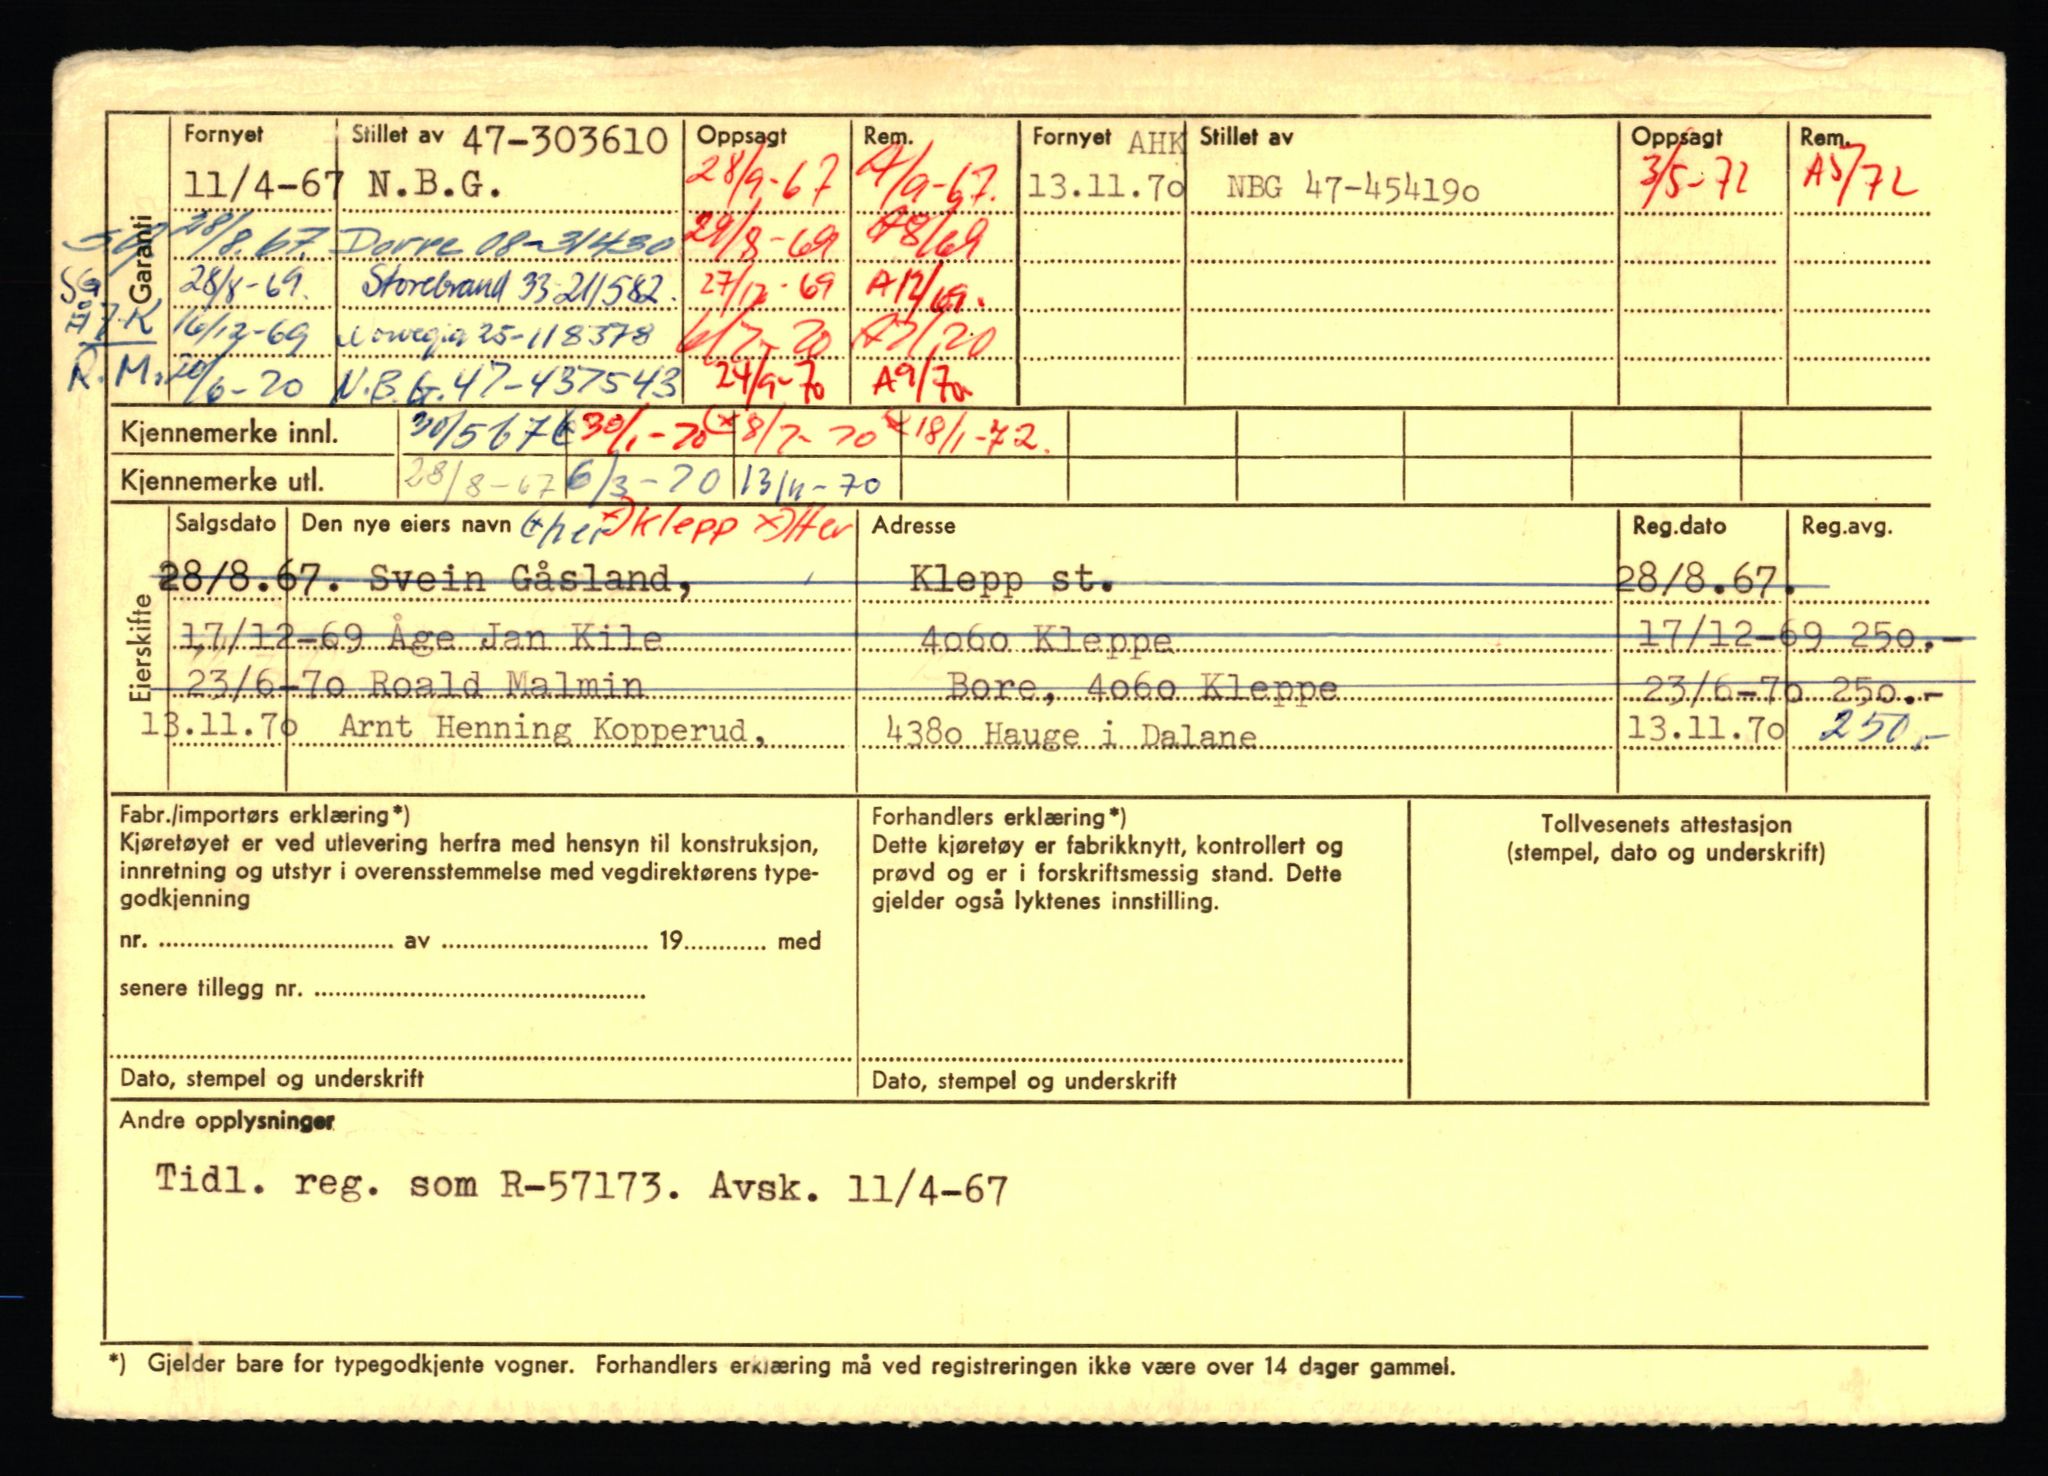 Fornyet Stillet av 47-303610 Oppsagt Rem. Fornyet AHK Stillet av Oppsagt Rem.
11/4-67 N.B.G. 28/9-67 A/9-67. 13.11.7o NBG 47-45419o 3/5-72 A5/72
SG 28/8.67. Dovre 08-31430 29/8-69 A8/69
SG 28/8-69. Storebrand 33-211582. 27/12-69 A12/69.
ÅJK 16/12-69 Norwegia 25-118378 6/7-70 A7/70
R.M. 20/6-70 N.B.G. 47-437543 24/9-70 A9/70
Garanti
Kjennemerke innl. 30/5 67 (x 30/1-70 (x 8/7-70 x 18/1-72.
Kjennemerke utl. 28/8-67 6/3-70 13/11-70
Salgsdato Den nye eiers navn (x her x) Klepp x) Her Adresse Reg.dato Reg.avg.
28/8.67. Svein Gåsland, Klepp st. 28/8.67.
17/12-69 Åge Jan Kile 4o6o Kleppe 17/12-69 25o.-
23/6-7o Roald Malmin Bore, 4o6o Kleppe 23/6-7o 25o.-
13.11.7o Arnt Henning Kopperud, 438o Hauge i Dalane 13.11.7o 250,-
Eierskifte
Fabr./importørs erklæring*)
Kjøretøyet er ved utlevering herfra med hensyn til konstruksjon,
innretning og utstyr i overensstemmelse med vegdirektørens type-
godkjenning
nr. .......... av .......... 19.......... med
senere tillegg nr. ..........
Dato, stempel og underskrift
Forhandlers erklæring*)
Dette kjøretøy er fabrikknytt, kontrollert og
prøvd og er i forskriftsmessig stand. Dette
gjelder også lyktenes innstilling.
Dato, stempel og underskrift
Tollvesenets attestasjon
(stempel, dato og underskrift)
Andre opplysninger
Tidl. reg. som R-57173. Avsk. 11/4-67
*) Gjelder bare for typegodkjente vogner. Forhandlers erklæring må ved registreringen ikke være over 14 dager gammel.